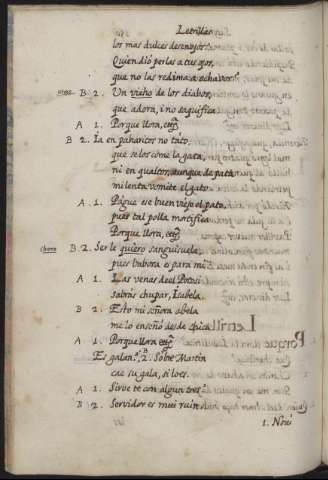 Letrillas
los mas dulces desenojos:
Quien dió perlas a tus ojos,
que no las redima a ochavos?
B 2. Un viejo de los diablos,
que adora, i no saquifica
A 1. Porque llora, etc
B 2. La en paharicos no tato,
que se los come la gata,
ni en qualtos, aunque da pata
mi lenta vomite el gato.
A 1. Págue ese buen viejo el pato,
pues tal polla mortifica
Porque llora, etc
choro B. 2. Serle quiero sanguisuela
pues bubora es para mi
A 1. Las venas de el Potosi
sabràs chupar, Isabela.
B 2. Esto mi señora abela
me lo enseñó desde chica.
A 1. Porque llora etc
Es galan? B 2. Sobre Martin
cae su gala, si lo es.
A 1. Sirve te con algun tres?
B 2. Servidor es mui ruin